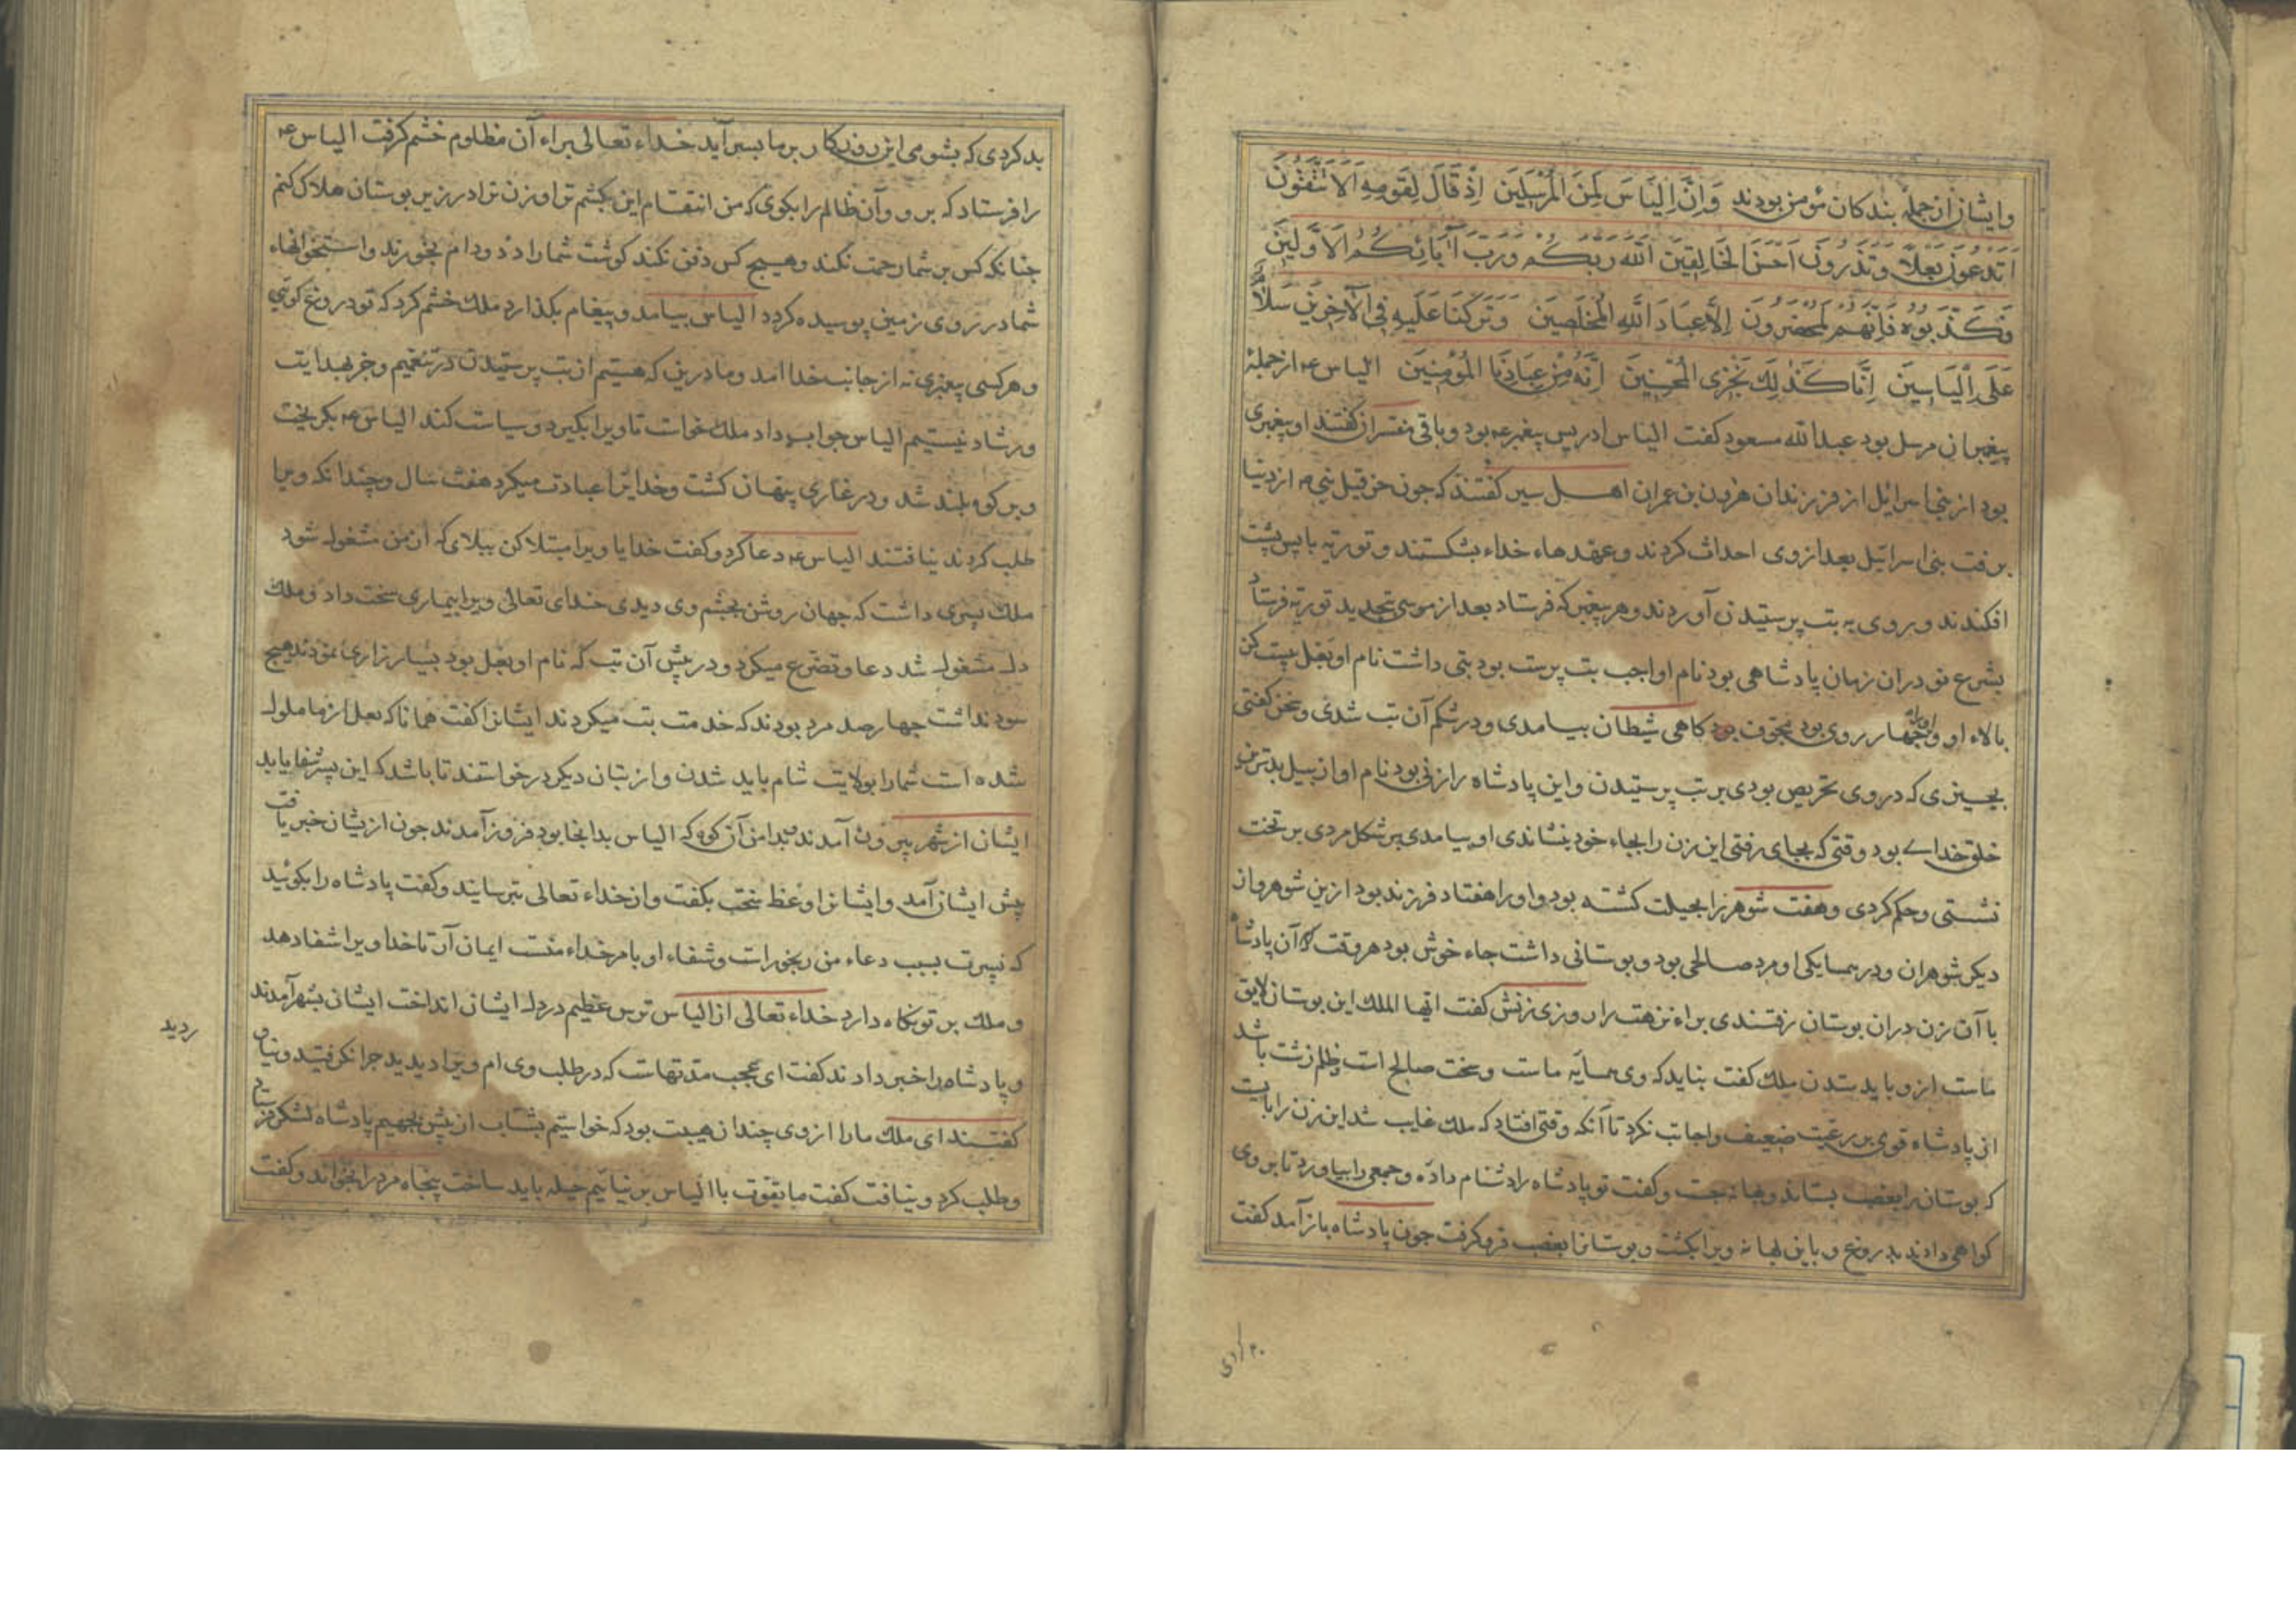 وایشان از جملهٔ بندکان مؤمن بودند وَاِنَّ اِلْیَاسَ لَمِنَ الْمُرْسَلِینَ اِذْ قَالَ لِقَومِهِ اَلَا تَتَّقُونَ
اَتَدْعُونَ بَعْلًا وَتَذَرُونَ اَحْسَنَ الْخَالِقِینَ اَللّٰهَ رَبَّکُمْ وَرَبَّ آبَائِکُمُ الْاَوَّلِینَ
فَکَذَّبُوهُ فَاِنَّهُمْ لَمُحْضَرُونَ اِلَّا عِبَادَ اللّٰهِ الْمُخْلَصِینَ وَتَرَکْنَا عَلَیْهِ فِی الْآخِرِینَ سَلَامٌ
عَلَی اِلْیَاسِینَ اِنَّا کَذٰلِکَ نَجْزِی الْمُحْسِنِینَ اِنَّهُ مِنْ عِبَادِنَا الْمُؤْمِنِینَ الیاس ع از جملهٔ
پیغمبران مرسل بود عبدالله مسعود کفت الیاس ادریس پیغمبر ع بود و باقی مفسران کفتند او پیغمبری
بود از بنی اسرائیل از فرزندان هرون بن عمران اهل سیر کفتند که جون حزقیل نبی ع از دنیا
برفت بنی اسرائیل بعد از وی احداث کردند و عهدهاء خداء بشکستند و توریة باپس پشت
افکندند و روی به بت پرستیدن آوردند و هر پیغمبر که فرستاد بعد از موسی بتجدید توریة فرستاد
بشرع نو دران زمان پادشاهی بود نام او اجب بت پرست بود بتی داشت نام او بعل بیست کز
بالاء او و اورا چهار روی بود مجوف بود کاهی شیطان بیامدی و در شکم آن بت شدی و سخن کفتی
بچیزی که دروی تحریص بودی بر بت پرستیدن و این پادشاه را زنی بود نام او ازبیل بدترین
خلق خدای بود وقتی که بجای رفتی این زن را بجاء خود بنشاندی او بیامدی بر شکل مردی بر تخت
نشستی و حکم کردی و هفت شوهر را بحیلت کشته بود و او را هفتاد فرزند بود ازین شوهر و از
دیکر شوهران و در همسایکی او مرد صالحی بود و بوستانی داشت جاء خوش بود هر وقت که آن پادشاه
با آن زن دران بوستان رفتندی براء نزهت را روزی زنش کفت ایها الملک این بوستان لایق
ماست ازو باید ستدن ملک کفت نباید که وی همسایهٔ ماست و سخت صالح است و ظلم زشت باشد
از پادشاه قوی بر رعیت ضعیف و اجابت نکرد تا آنکه وقتی افتاد که ملک غایب شد این زن را بایست
که بوستان را بغصب بستاند و بهانه جست و کفت تو پادشاه را دشنام دادهٔ و جمعی را بیاورد تا بر وی
کواهی دادند بدروغ و باین بهانه ویرا بکشت و بوستانرا بغصب فرو کرفت جون پادشاه باز آمد کفت
بد کردی که بشومی این روزکار بر ما بسر آید خداء تعالی براء آن مظلوم خشم کرفت الیاس ع
را فرستاد که برو و آن ظالم را بکوی که من انتقام این بکشم ترا و زن ترا در زیر بوستان هلاک کنم
جنانکه کس بر شما رحمت نکند و هیچ کس دفن نکند کوشت شما را دد و دام بخورند و استخوانهاء
شما در روی زمین پوسیده کردد الیاس بیامد و پیغام بکذارد ملک خشم کرد که تو دروغ کوئی
و هر کسی پیغمبری نه از جانب خدا آمد و ما درین که هستیم از بت پرستیدن در تنعمیم و جز بهدایت
و رشاد نیستیم الیاس جواب داد ملک خواست تا ویرا بکیرد و سیاست کند الیاس ع بکریخت
و بر کوه بلند شد و در غاری پنهان کشت و خدایرا عبادت میکرد هفت سال و چندانکه ویرا
طلب کردند نیافتند الیاس ع دعا کرد و کفت خدایا ویرا مبتلا کن ببلای که از من مشغول شود
ملک پسری داشت که جهان روشن بچشم وی دیدی خدای تعالی ویرا بیماری سخت داد و ملک
دل مشغول شد دعا و تضرع میکرد و در پیش آن بت که نام او بعل بود بسیار زاری نمودند هیچ
سود نداشت جهار صد مرد بودند که خدمت بت میکردند ایشانرا کفت همانا که بعل از ما ملول
شده است شما را بولایت شام باید شدن و از بتان دیکر درخواستند تا باشد که این پسر شفا یابد
ایشان از شهر بیرون آمدند بدامن آن کوه که الیاس بدانجا بود فرود آمدند جون از ایشان خبر یافت
پیش ایشان آمد و ایشانرا وعظ سخت بکفت و از خداء تعالی بترسانید و کفت پادشاه را بکوئید
که پسرت بسبب دعاء من رنجور است و شفاء او بامر خداء منست ایمان آر تا خدا ویرا شفا دهد
و ملک بر تو نکاه دارد خداء تعالی از الیاس ترس عظیم در دل ایشان انداخت ایشان بشهر آمدند
و پادشاه را خبر دادند کفت ای عجب مدتهاست که در طلب وی ام ویرا دیدید جرا نکرفتید و نیاوردید
کفتند ای ملک ما را از وی چندان هیبت بود که خواستیم بشتاب از پیش بجهیم پادشاه لشکر فرستاد
و طلب کرد و نیافت کفت ما بقوت با الیاس بر نیائیم حیله باید ساخت پنجاه مرد را بخواند و کفت